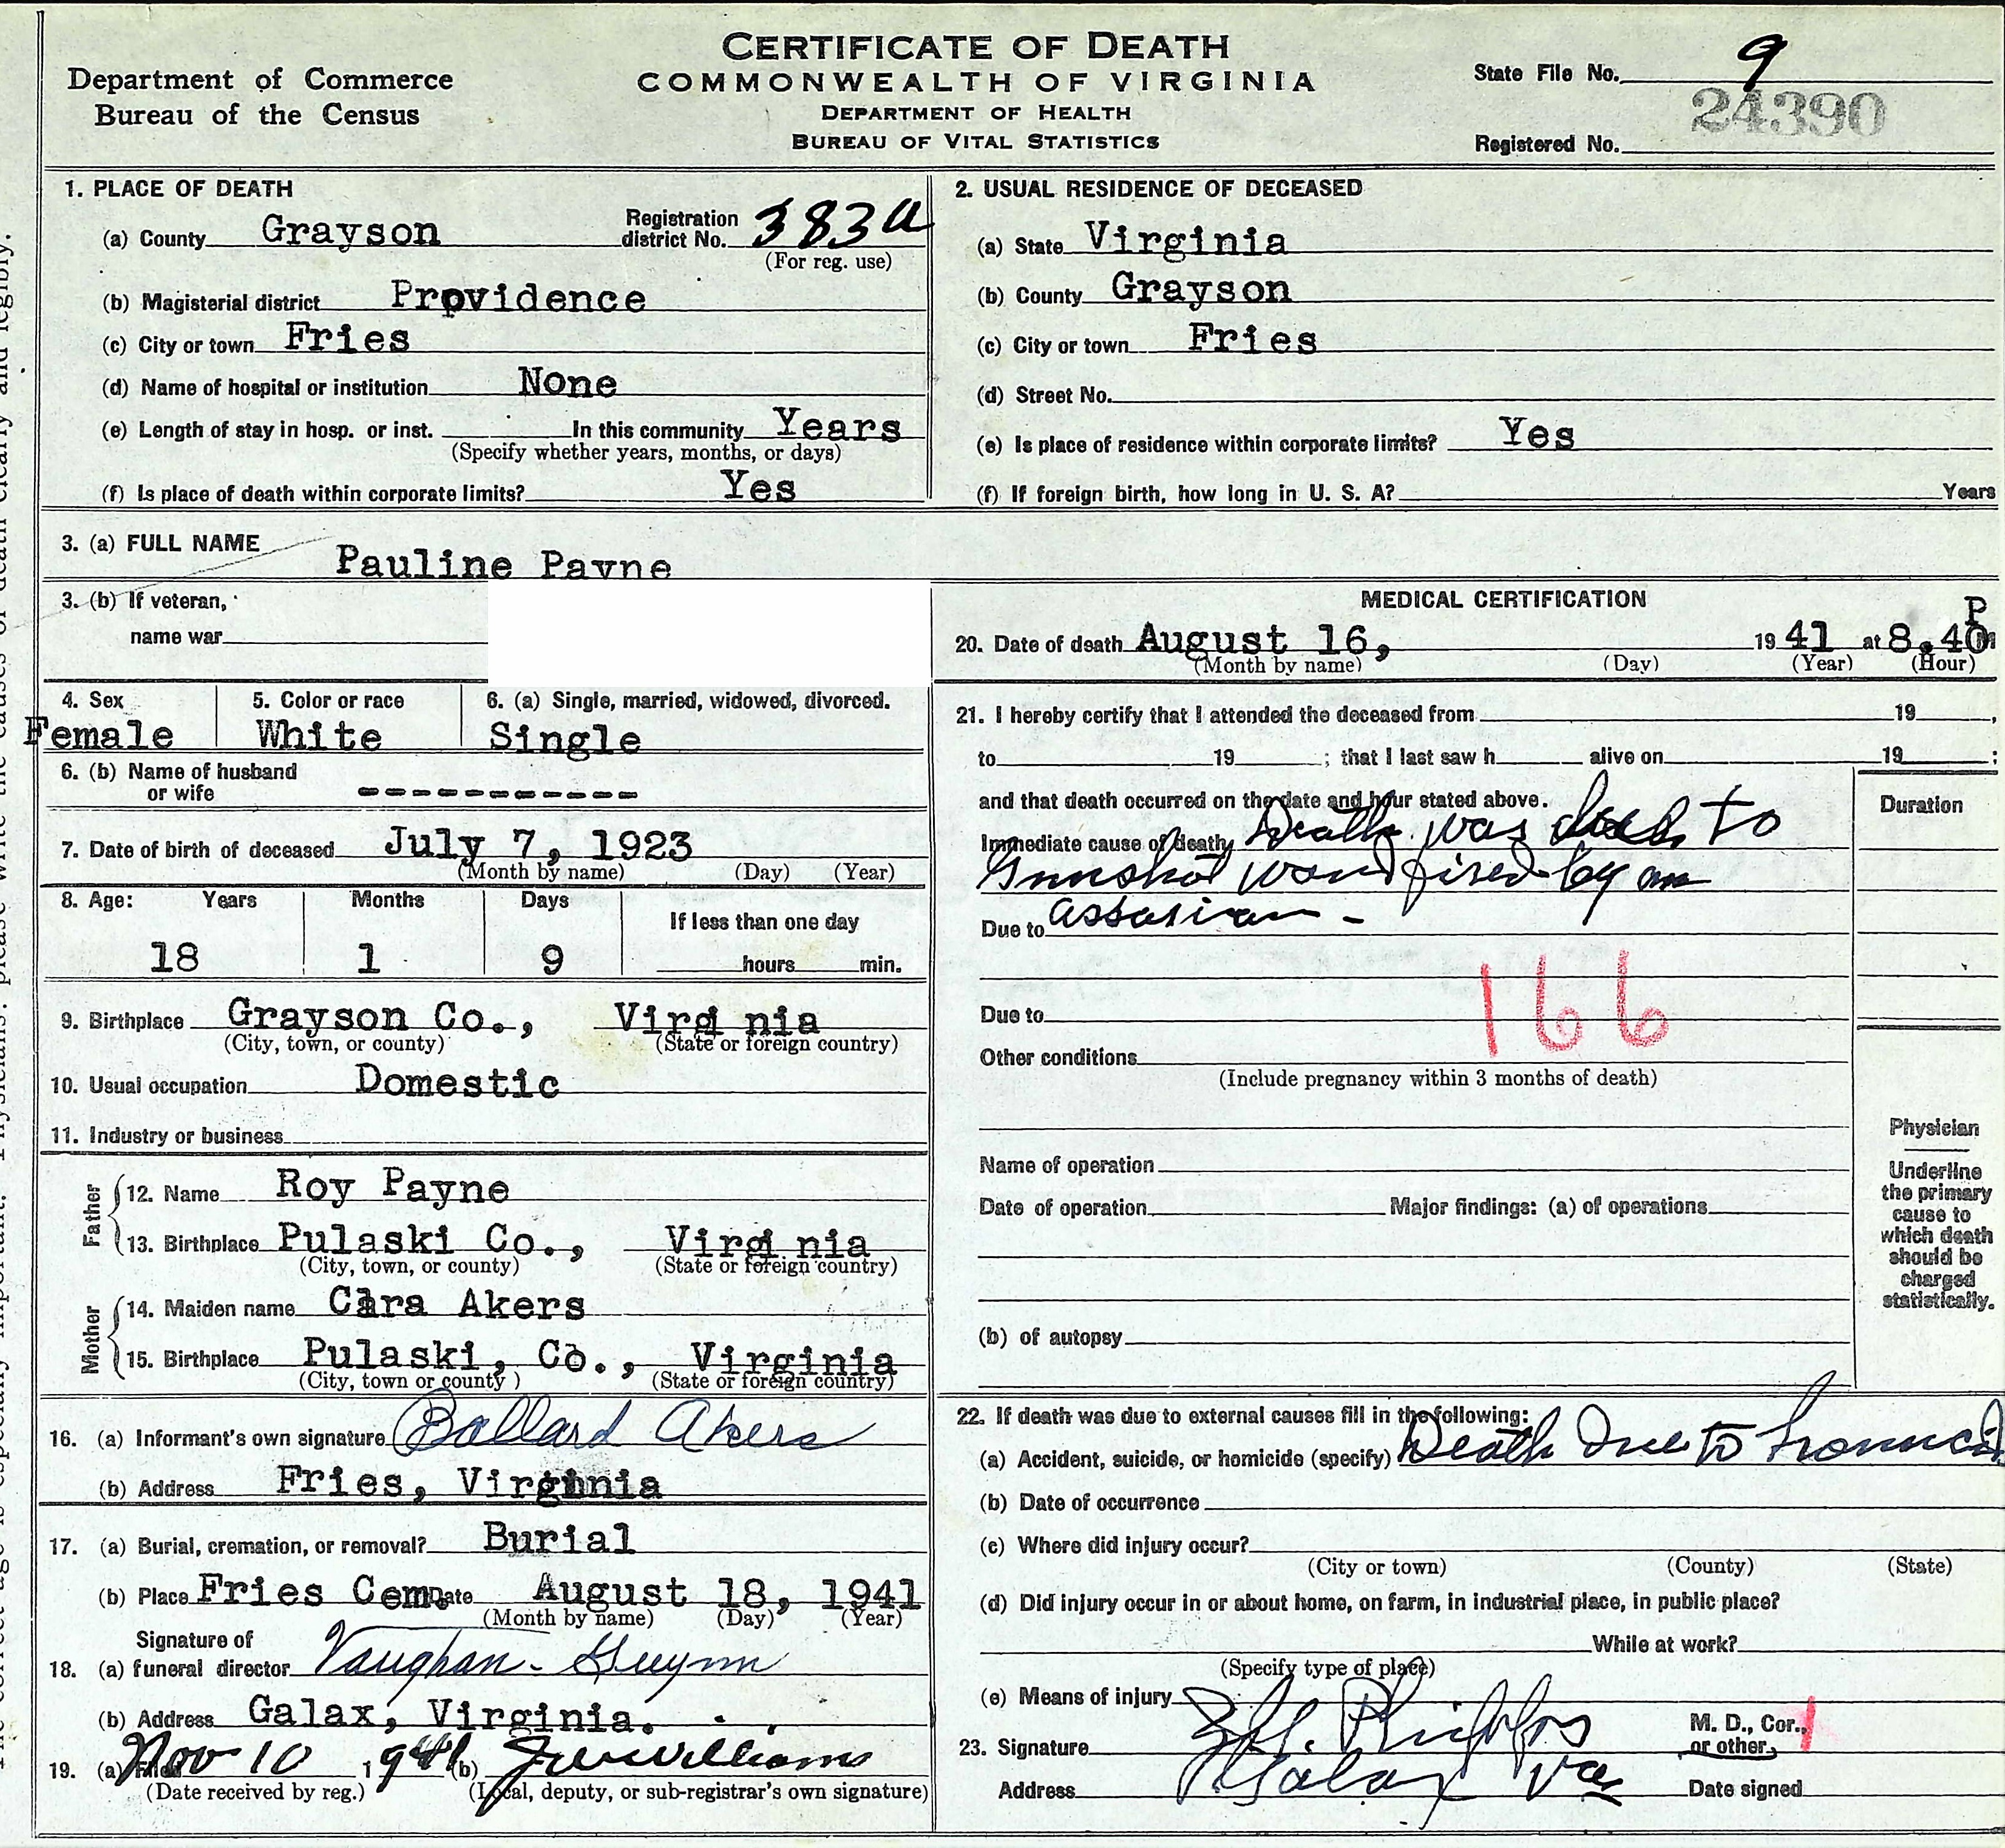 CERTIFICATE OF DEATH
COMMONWEALTH OF VIRGINIA
DEPARTMENT OF HEALTH
BUREAU OF VITAL STATISTICS
Department of Commerce
Bureau of the Census
State File No. 9
24390
Registered No.
1. PLACE OF DEATH
(a) County Grayson Registration district No. 383a
(For reg. use)
(b) Magisterial district Providence
(c) City or town Fries
(d) Name of hospital or institution None
(e) Length of stay in hosp. or inst. In this community Years
(Specify whether years, months, or days)
(f) Is place of death within corporate limits? Yes
2. USUAL RESIDENCE OF DECEASED
(a) State Virginia
(b) County Grayson
(c) City or town Fries
(d) Street No.
(e) Is place of residence within corporate limits? Yes
(f) If foreign birth, how long in U. S. A? Years
3. (a) FULL NAME Pauline Payne
3. (b) If veteran,
name war
4. Sex 5. Color or race 6. (a) Single, married, widowed, divorced.
Female White Single
6. (b) Name of husband
or wife -----------
7. Date of birth of deceased July 7, 1923
(Month by name) (Day) (Year)
8. Age: Years Months Days If less than one day
18 1 9 hours min.
9. Birthplace Grayson Co., Virg nia
(City, town, or county) (State or foreign country)
10. Usual occupation Domestic
11. Industry or business
Father
12. Name Roy Payne
13. Birthplace Pulaski Co., Virgi nia
(City, town, or county) (State or foreign country)
Mother
14. Maiden name Clara Akers
15. Birthplace Pulaski, Co., Virginia
(City, town or county ) (State or foreign country)
16. (a) Informant's own signature Ballard Akers
(b) Address Fries, Virginia
17. (a) Burial, cremation, or removal? Burial
(b) Place Fries Cem. Date August 18, 1941
(Month by name) (Day) (Year)
Signature of
18. (a) funeral director Vaughan-Guynn
(b) Address Galax, Virginia.
19. (a) Filed Nov 10 1941 (b) J W Williams
(Date received by reg.) (Local, deputy, or sub-registrar's own signature)
MEDICAL CERTIFICATION
20. Date of death August 16, 1941 at 8.40 P m
(Month by name) (Day) (Year) (Hour)
21. I hereby certify that I attended the deceased from 19 ,
to 19 ; that I last saw h alive on 19 ;
and that death occurred on the date and hour stated above.
Duration
Immediate cause of death Death was due to
Gunshot wound fired by an
Due to assassian -
166
Due to
Other conditions
(Include pregnancy within 3 months of death)
Name of operation
Date of operation Major findings: (a) of operations
(b) of autopsy
Physician
Underline
the primary
cause to
which death
should be
charged
statistically.
22. If death was due to external causes fill in the following:
(a) Accident, suicide, or homicide (specify) Death Due to homicid
(b) Date of occurrence
(c) Where did injury occur?
(City or town) (County) (State)
(d) Did injury occur in or about home, on farm, in industrial place, in public place?
While at work?
(Specify type of place)
(e) Means of injury
23. Signature Phipps M. D., Cor., or other
Address Galax Va Date signed